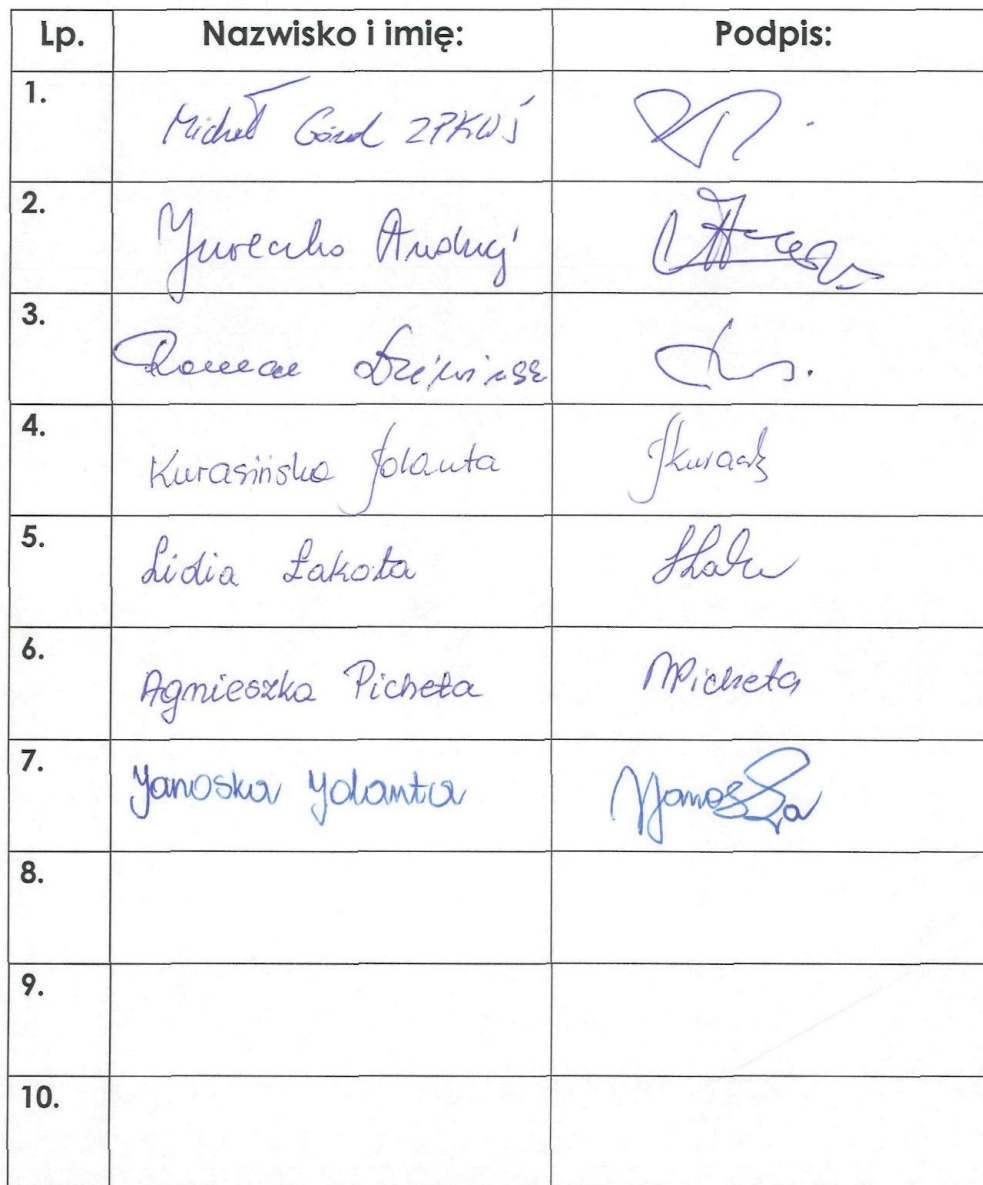 Lp. Nazwisko i imię: Podpis:
1. Michał Góral ZPKWŚ
2. Jureczko Andrzej
3. Roman
4. Kurasińska Jolanta
5. Lidia Łakota
6. Agnieszka Picheta Picheta
7. Janoska Jolanta Janoska
8.
9.
10.